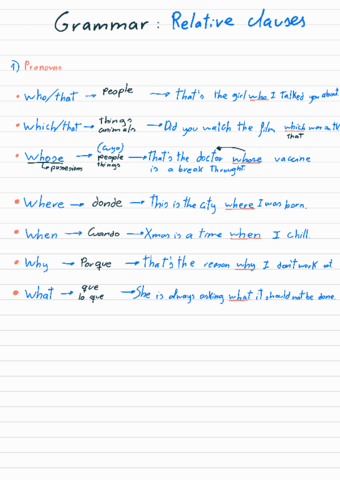 Grammar: Relative clauses
1) Pronouns
• Who/that → people → that's the girl who I talked you about.
• Which/that → things animals → Did you watch the film which was on TV
that
• Whose → (cuyo) people things → that's the doctor whose vaccine
↳ possession is a break throught.
• Where → donde → This is the city where I was born.
• When → Cuando → Xmas is a time when I chill.
• Why → Porque → that's the reason why I don't work out.
• What → que lo que → She is always asking what it should not be done.